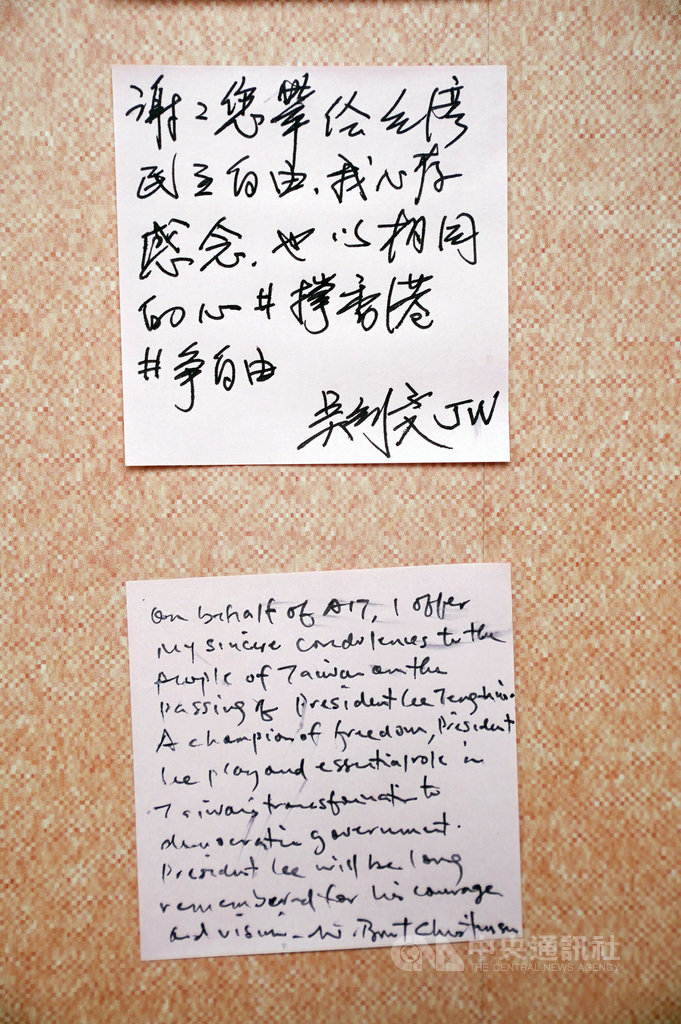 谢々您擘绘台湾
民主自由，我心存
感念，也以相同
的心#撑香港
#争自由
吴钊燮 JW
On behalf of AIT, I offer
my sincere condolences to the
people of Taiwan on the
passing of President Lee Teng-hui.
A champion of freedom, President
Lee play and essential role in
Taiwan's transformation to
democratic government.
President Lee will be long
remembered for his courage
and vision. Brent Christensen
中央通訊社
THE CENTRAL NEWS AGENCY